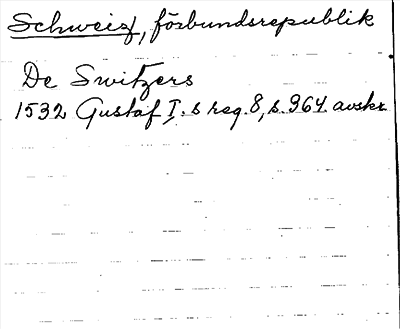 Schweiz, förbundsrepublik
De Switzers
1532 Gustaf I.s reg. 8, s. 364. avskr.